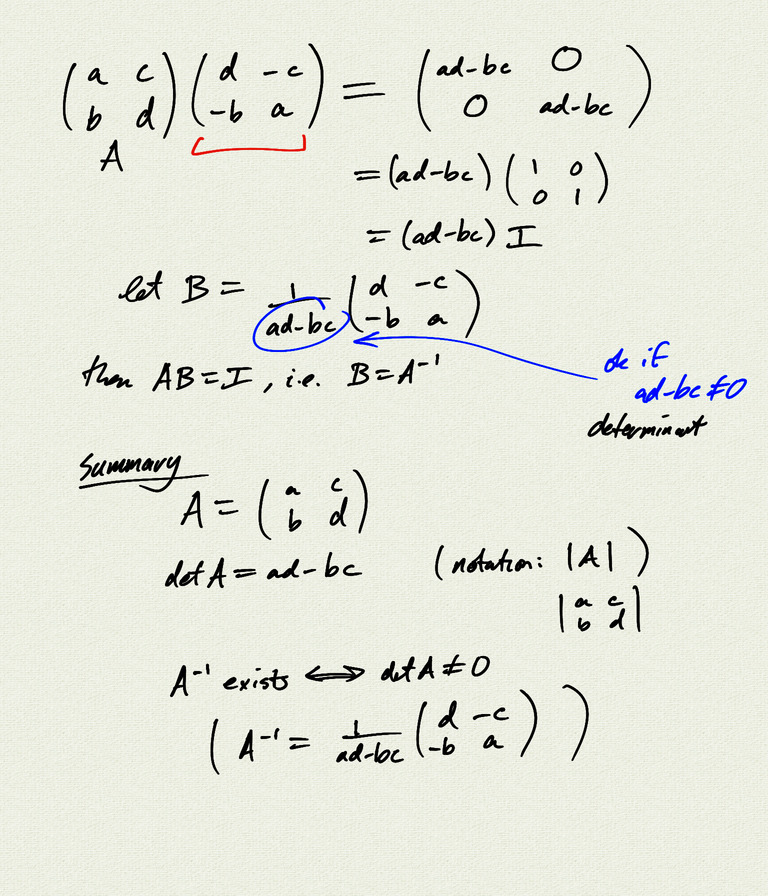 (a c; b d) (d -c; -b a) = (ad-bc 0; 0 ad-bc)
A
= (ad-bc) (1 0; 0 1)
= (ad-bc) I
let B = 1/(ad-bc) (d -c; -b a)
then AB = I, i.e. B = A⁻¹
ok if
ad-bc ≠ 0
determinant
Summary
A = (a c; b d)
det A = ad-bc (notation: |A|)
|a c; b d|
A⁻¹ exists ⟺ det A ≠ 0
(A⁻¹ = 1/(ad-bc) (d -c; -b a))